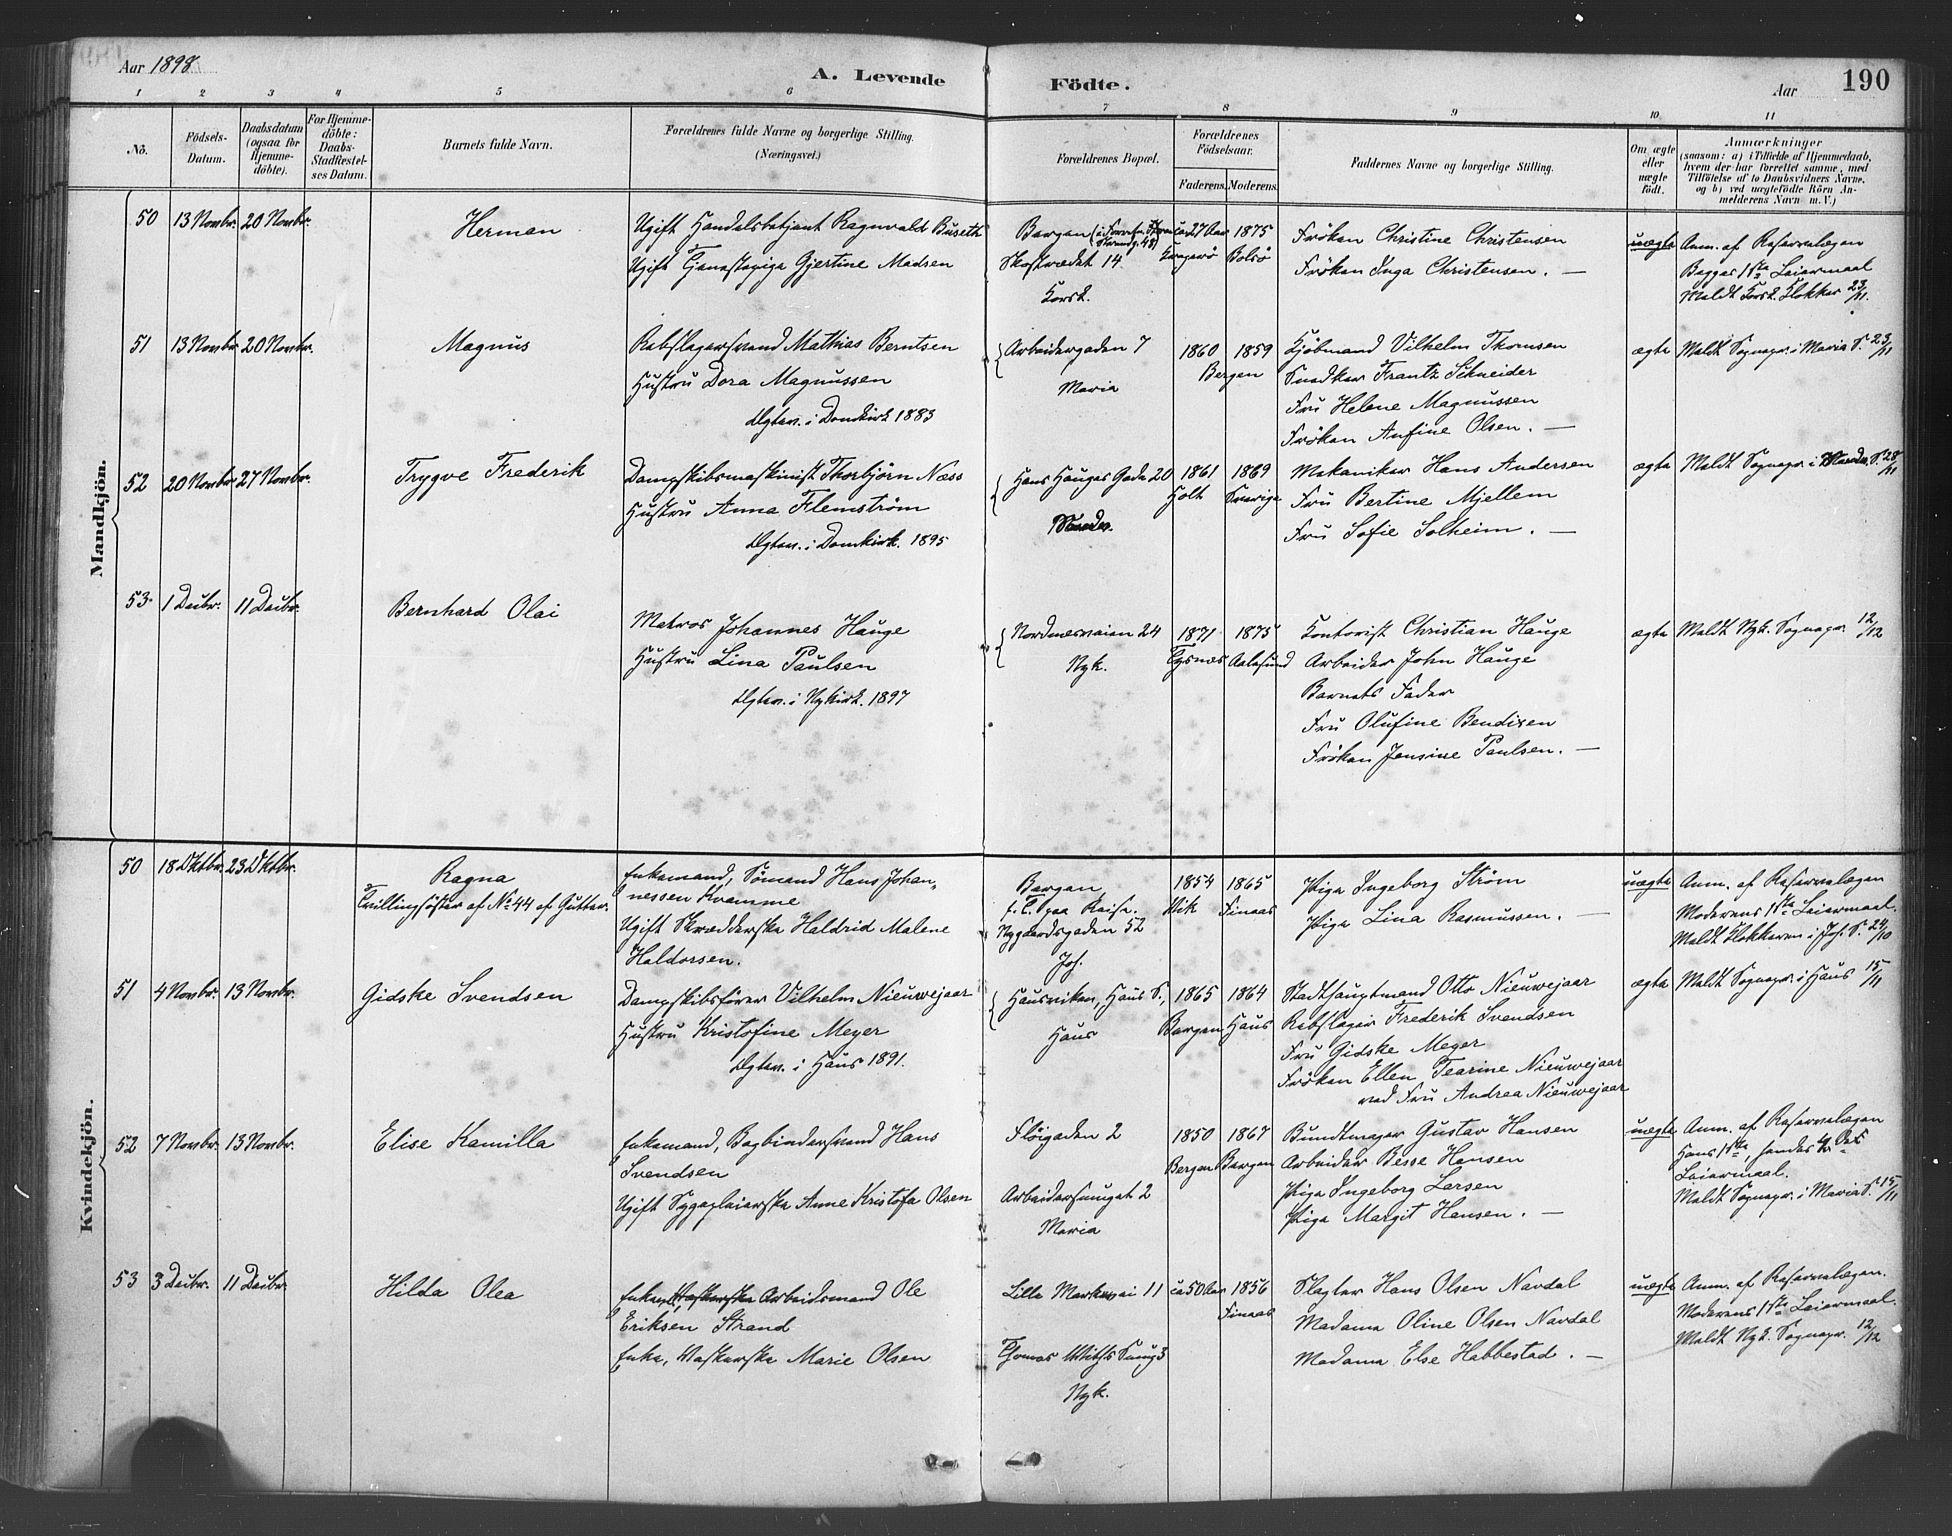 Aar 1898.
A. Levende
Födte.
Aar
190
1 2 3 4 5 6 7 8 9 10 11
No.
Födsels-Datum.
Daabsdatum (ogsaa for Hjemme-döbte).
For Hjemme-döbte: Daabs-Stadfæstel-ses Datum.
Barnets fulde Navn.
Forældrenes fulde Navne og borgerlige Stilling.
(Næringsvei.)
Forældrenes Bopæl.
Forældrenes Födselsaar.
Faderens. Moderens.
Faddernes Navne og borgerlige Stilling.
Om ægte eller uægte født.
Anmærkninger
(saasom: a) i Tilfælde af Hjemmedaab, hvem der har forrettet samme, med Tilføielse af to Daabsvidners Navne, og b) ved uægtefödte Börn An-melderens Navn m. V.)
Mandkjön.
50 13 Novbr. 20 Novbr.
Herman
Ugift Handelsbetjent Ragnvald Buseth
Ugift Tjenestepige Gjertine Madsen
Bergen
Strandg. 48)
Skostrædet 14
Korsk.
ca 27 Aar
Kragerø
1875
Bolsø
Frøken Christine Christensen
Frøken Inga Christensen. —
uægte
Anm. af Reservelægen
Begges 1ste Leiermaal
Meldt Korsk. Klokker 23/11.
51 13 Novbr. 20 Novbr.
Magnus
Rebslagersvend Mathias Berntsen
Hustru Dora Magnussen
Ægtev. i Domkirk. 1883
Arbeidergaden 7
Maria
1860 1859
Bergen
Kjöbmand Vilhelm Thomsen
Snedker Frantz Schneider
Fru Helene Magnussen
Frøken Anfine Olsen. —
ægte
Meldt Sognepr. i Maria S. 23/11
52 20 Novbr. 27 Novbr.
Trygve Frederik
Dampskibsmaskinist Thorbjörn Næss
Hustru Anna Flemström
Ægtev. i Domkirk. 1895
Hans Hauges Gade 20
1861
Holt
1869
Sverige
Mekaniker Hans Andersen
Fru Bertine Mjellem
Fru Sofie Solheim. —
ægte
Meldt Sognepr. i
S. 28/11
53 1 Decbr. 11 Decbr.
Bernhard Olai
Matros Johannes Hauge
Hustru Lina Paulsen
Ægtev. i Nykirk. 1897
Nordnesveien 24
Nyk.
1871
Tysnæs
1875
Aalesund
Kontorist Christian Hauge
Arbeider John Hauge
Barnets Fader
Fru Olufine Bendixen
Frøken Jensine Paulsen. —
ægte
Meldt Nyk. Sognepr. 12/12
Kvindekjön.
50 18 Oktbr. 23 Oktbr.
Ragna
Tvillingsöster af No 44 af Gutter.
Enkemand, Sömand Hans Johan-
nessen Kvamme
Ugift Skrædderske Haldrid Malene
Haldorsen.
Bergen
f. T. paa Reise.
Nygaardsgaden 52
Joh.
1854
Vik
1865
Finaas
Pige Ingeborg Ström
Pige Lina Rasmussen. —
uægte
Anm. af Reservelægen
Moderens 1ste Leiermaal.
Meldt Klokkeren i Joh. S. 24/10
51 4 Novbr. 13 Novbr.
Gidske Svendsen
Dampskibsförer Vilhelm Nieuwejaar
Hustru Kristofine Meyer
Ægtev. i Haus 1891.
Hausviken, Haus S.,
Haus
1865
Bergen
1864
Haus
Stadthauptmand Otto Nieuwejaar
Rebslager Frederik Svendsen
Fru Gidske Meyer
Frøken Ellen Tearine Nieuwejaar
ved Fru Andrea Nieuwejaar
ægte
Meldt Sognepr. i Haus 15/11
52 7 Novbr. 13 Novbr.
Elise Kamilla
Enkemand, Bogbindersvend Hans
Svendsen
Ugift Sygepleierske Anne Kristofa Olsen
Fløigaden 2
Arbeidersmuget 2
Maria
1850
Bergen
1867
Bergen
Bundtmager Gustav Hansen
Arbeider Besse Hansen
Pige Ingeborg Larsen
Pige Margit Hansen. —
uægte
Anm. af Reservelægen
Hans 1ste, hendes 4 des
Leiermaal.
Meldt Sognepr. i Maria S. 15/11
53 3 Decbr. 11 Decbr.
Hilda Olea
Arbeidsmand Ole
Eriksen Strand
Enke, Vaskerske Marie Olsen
Lille Markevei 11
Nyk.
ca 50 Aar
1856
Finaas
Slagter Hans Olsen Navdal
Madame Oline Olsen Navdal
Madame Else Habbestad. —
uægte
Anm. af Reservelægen.
Moderens 1ste Leiermaal.
Meldt Nyk. Sognepr. 12/12